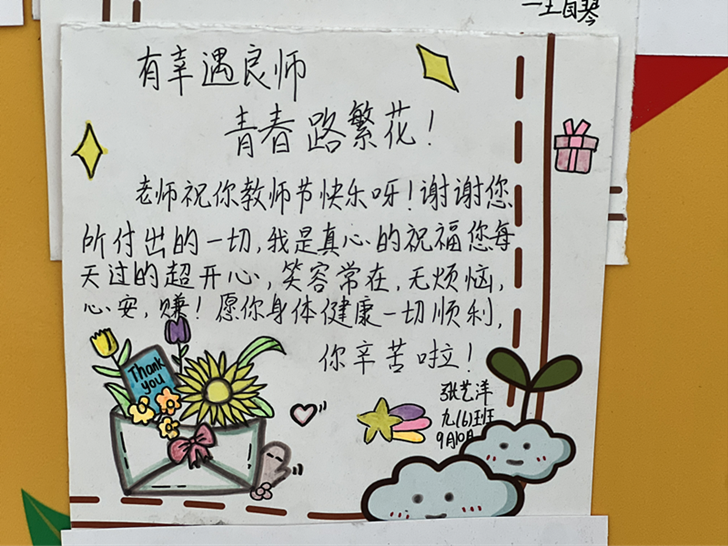 有幸遇良师
青春路繁花!
老师祝你教师节快乐呀!谢谢您
所付出的一切,我是真心的祝福您每
天过的超开心,笑容常在,无烦恼,
心安,赚!愿你身体健康一切顺利,
你辛苦啦!
Thank
you
张艺洋
九(6)班
9月10日